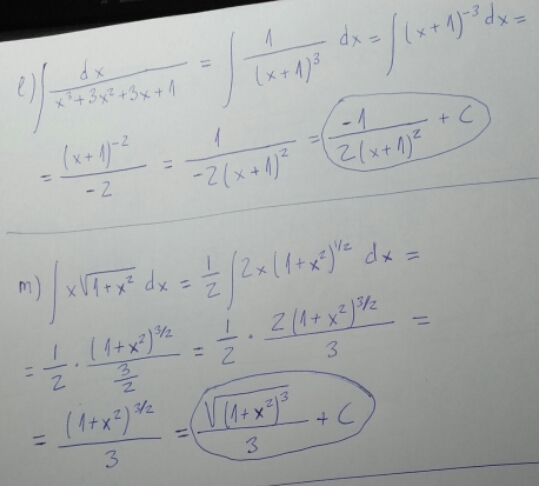 l) ∫ dx / (x³+3x²+3x+1) = ∫ 1 / (x+1)³ dx = ∫ (x+1)⁻³ dx =
= (x+1)⁻² / -2 = 1 / -2(x+1)² = -1 / 2(x+1)² + C
m) ∫ x√(1+x²) dx = 1/2 ∫ 2x(1+x²)^(1/2) dx =
= 1/2 · (1+x²)^(3/2) / (3/2) = 1/2 · 2(1+x²)^(3/2) / 3 =
= (1+x²)^(3/2) / 3 = √((1+x²)³) / 3 + C